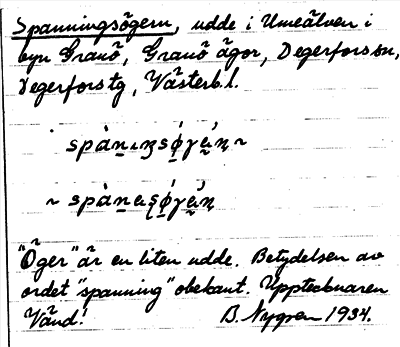 Spanningsögern, udde i Umeälven i
byn Granö, Granö ägor, Degerfors sn,
Degerfors tg, Västerb. l.
"Öger" är en liten udde. Betydelsen av
ordet "spanning" obekant. Upptecknaren
Vänd! B. Nygren 1934.